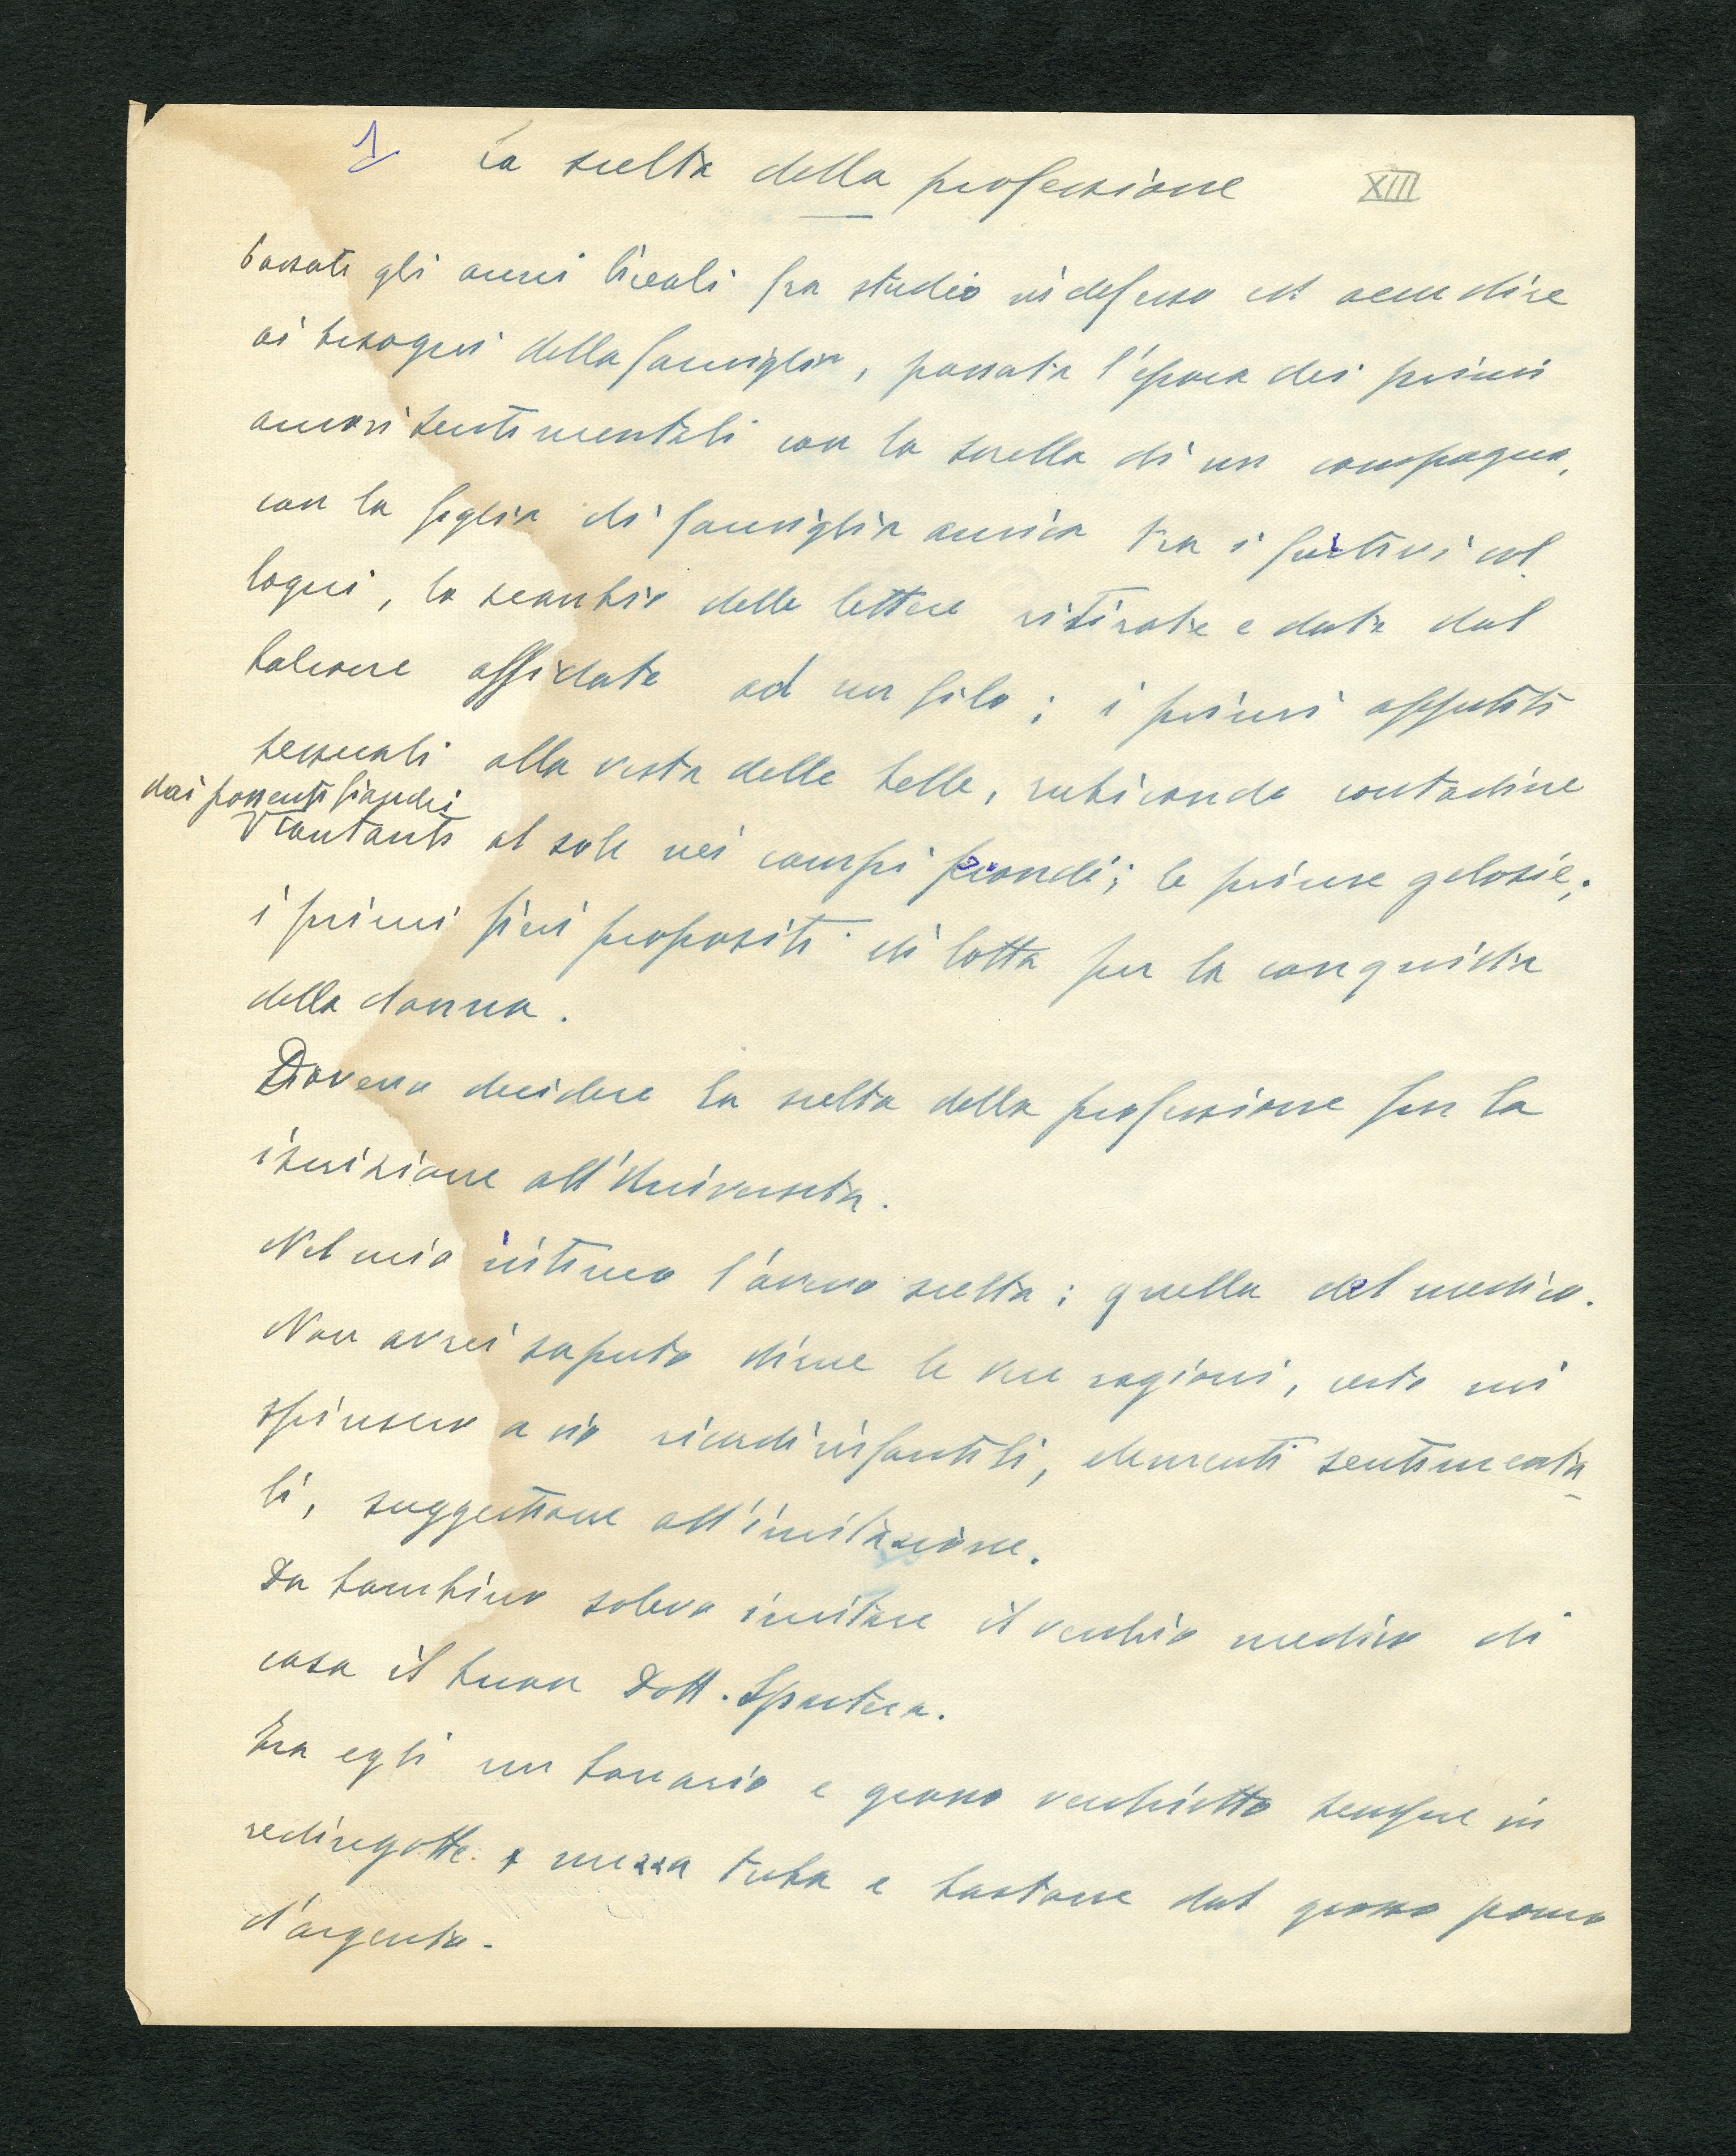 1 La scelta della professione XIII
Passati gli anni liceali fra studio indefesso ed accudire
ai bisogni della famiglia, passata l'epoca dei primi
amori sentimentali con la sorella di un compagno,
con la figlia di famiglia amica tra i furtivi col
loqui, lo scambio delle lettere ritirate e date dal
balcone affidate ad un filo; i primi appetiti
sessuali alla vista delle belle, rubiconde contadine
dai possenti fianchi
cantanti al sole nei campi fecondi; le prime gelosie;
i primi fieri propositi di lotta per la conquista
della donna.
Dovevo decidere la scelta della professione per la
iscrizione all'Università.
Nel mio intimo l'avevo scelta: quella del medico.
Non avrei saputo dirne le vere ragioni, certo mi
spinsero a ciò ricordi infantili, elementi sentimenta
li, suggestione all'imitazione.
Da bambino solevo imitare il vecchio medico di
casa il buon Dott.
Era egli un bonario e grosso vecchietto sempre in
redingotte mezza tuba e bastone dal grosso pomo
d'argento.